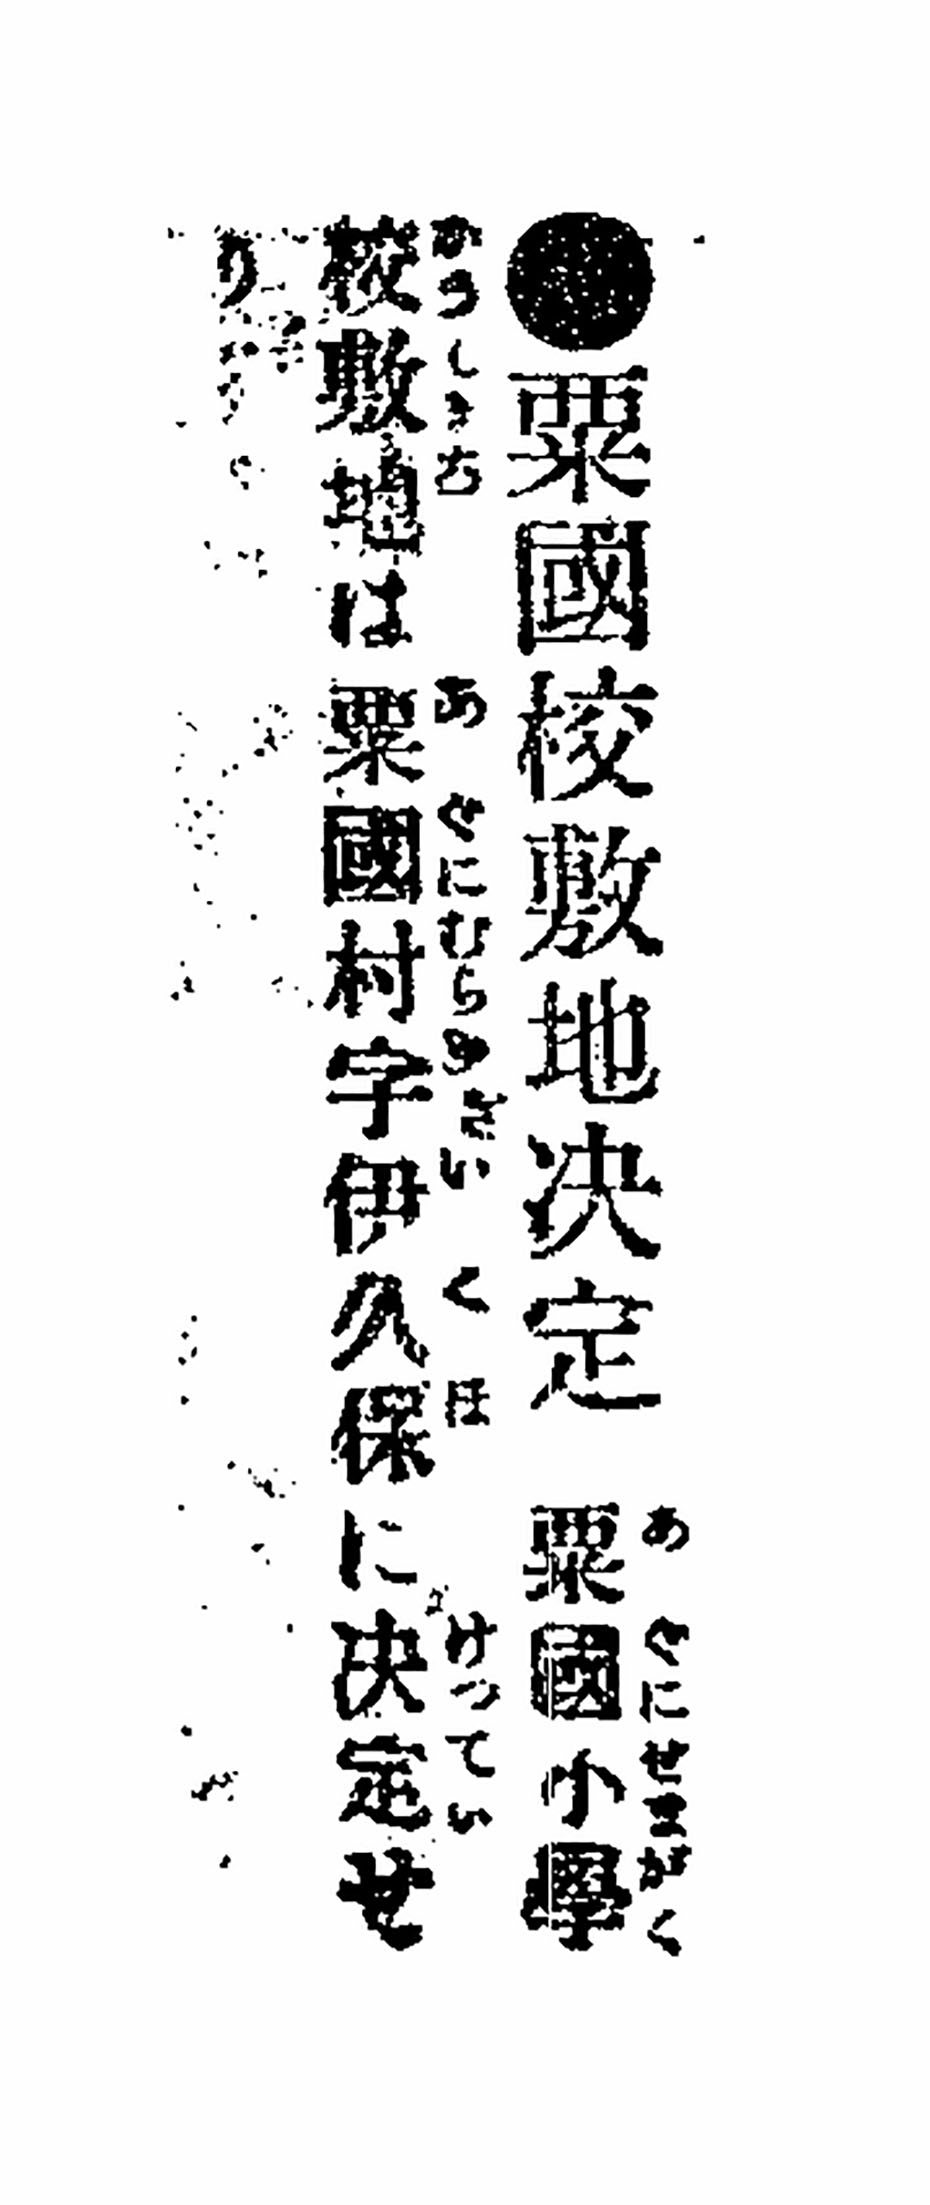 ●粟國校敷地決定　粟國小學
校敷地は粟國村字伊久保に決定せ
り